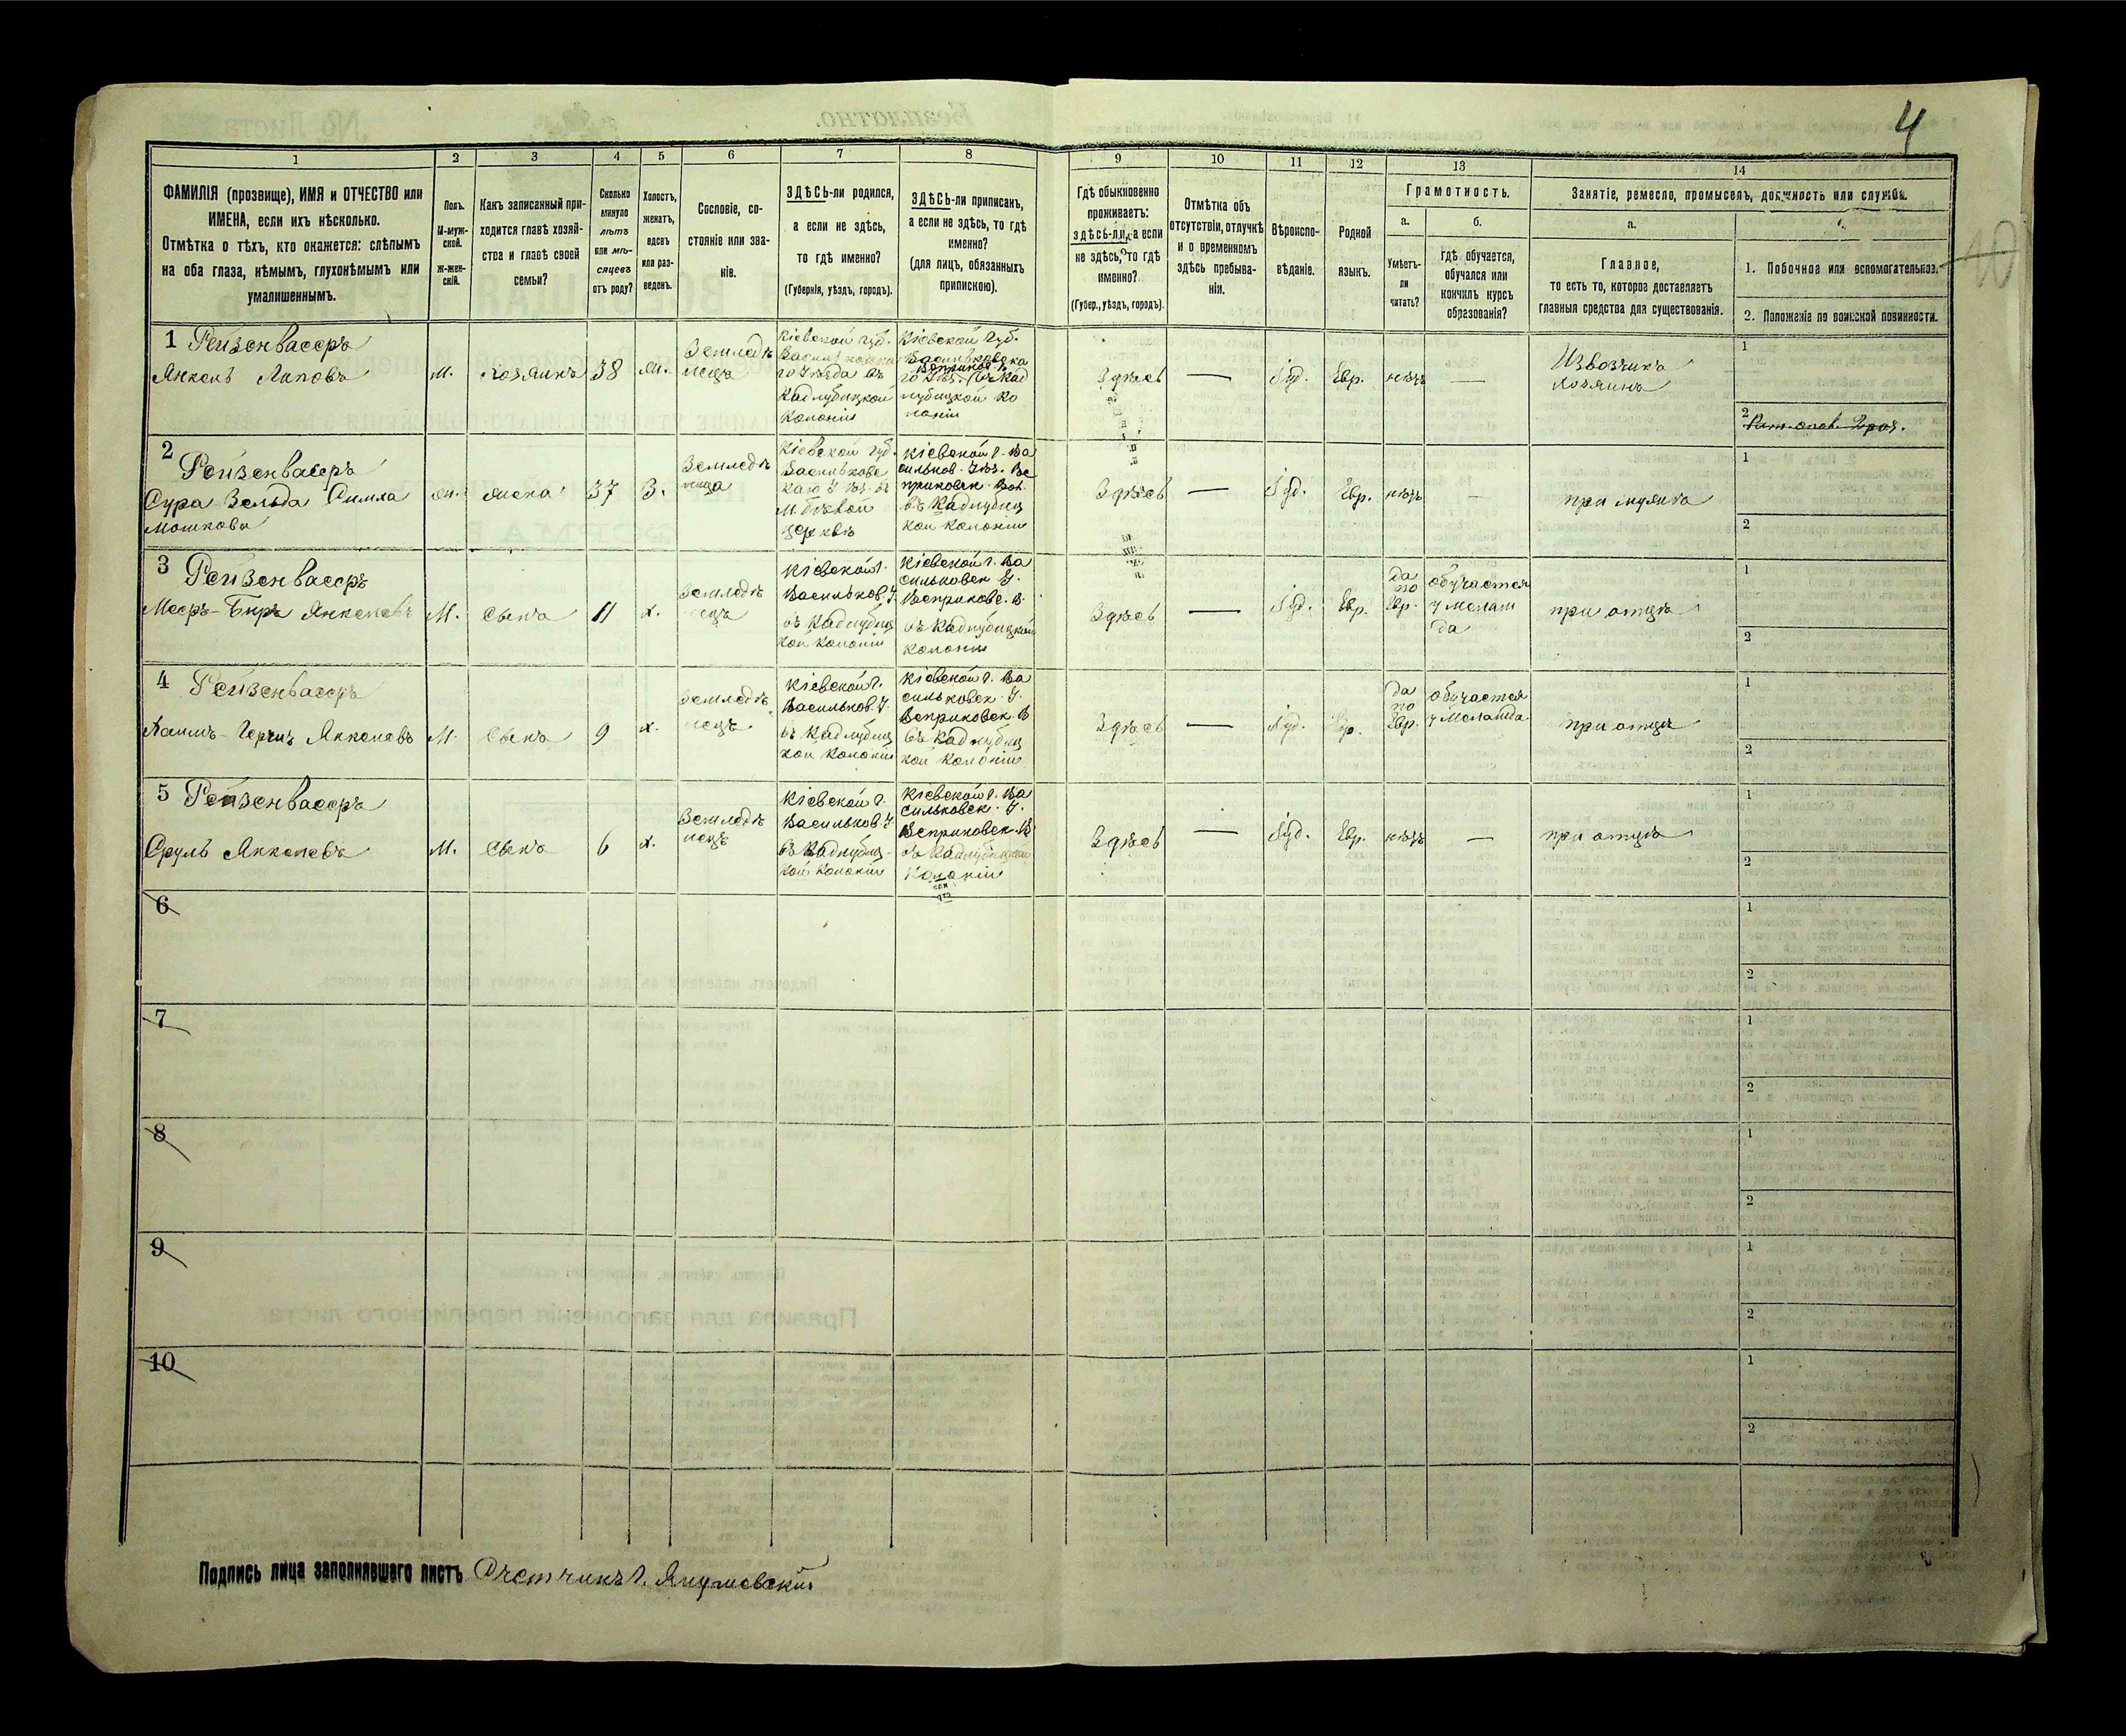 4
1
2
3
4
5
6
7
8
9
10
11
12
13
14
ФАМИЛІЯ (прозвище), ИМЯ и ОТЧЕСТВО или
ИМЕНА, если ихъ нѣсколько.
Отмѣтка о тѣхъ, кто окажется: слѣпымъ
на оба глаза, нѣмымъ, глухонѣмымъ или
умалишеннымъ.
Полъ.
М-муж-
ской.
Ж-жен-
скій.
Какъ записанный при-
ходится главѣ хозяй-
ства и главѣ своей
семьи?
Сколько
минуло
лѣтъ
или мѣ-
сяцевъ
отъ роду?
Холостъ,
женатъ,
вдовъ
или раз-
веденъ.
Сословіе, со-
стояніе или зва-
ніе.
ЗДѢСЬ-ли родился,
а если не здѣсь,
то гдѣ именно?
(Губернія, уѣздъ, городъ).
ЗДѢСЬ-ли приписанъ,
а если не здѣсь, то гдѣ
именно?
(для лицъ, обязанныхъ
припискою).
Гдѣ обыкновенно
проживаетъ:
здѣсь-ли, а если
не здѣсь, то гдѣ
именно?
(Губер., уѣздъ, городъ).
Отмѣтка объ
отсутствіи, отлучкѣ
и о временномъ
здѣсь пребыва-
ніи.
Вѣроиспо-
вѣданіе.
Родной
языкъ.
Грамотность.
а.
б.
Умѣетъ-
ли
читать?
Гдѣ обучается,
обучался или
кончилъ курсъ
образованія?
Занятіе, ремесло, промыселъ, должность или служба.
а.
Главное,
то есть то, которое доставляетъ
главныя средства для существованія.
1. Побочное или вспомогательное.
2. Положеніе по воинской повинности.
1 Рейзенвассръ
Янкель Липовъ
м.
хозяинъ
38
жн.
Земледѣ
лецъ
Кіевской губ.
го Уѣзда въ
Кадлубицкой
Колоніи
Кіевской губ.
Васильковска
го Уѣз. въ Кад
лубицкой Ко
лоніи
Здѣсь
—
Іуд.
Евр.
нѣтъ
—
Извозчикъ
хозяинъ
1
2
2
Рейзенвассръ
Сура Зельда Симла
Мошкова
жн.
жена
37
З.
Земледѣ
лица
Кіевской губ.
Васильковс
каго Уѣз. въ
М. бѣлой
церквѣ
Кіевской г. Ва
сильков. Уѣз. Ве
приковск. Вол.
въ Кадлубиц
кой колоніи
Здѣсь
—
Іуд.
Евр.
нѣтъ
—
при мужѣ
1
2
3 Рейзенвассръ
Мееръ-Беръ Янкелевъ
М.
сынъ
11
х.
Земледѣ
лецъ
Кіевской г.
Васильков. У.
въ Кадлубиц
кой колоніи
Кіевской г. Ва
сильковск У.
Веприковс. В.
въ Кадлубицкой
колоніи
Здѣсь
—
Іуд.
Евр.
да
по
Евр.
обучается
у Мелам
да
при отцѣ
1
2
4 Рейзенвассръ
Янкелевъ
М.
Сынъ
9
х.
Земледѣ
лецъ
Кіевской г.
Васильков. У.
въ Кадлубиц
кой Колоніи
Кіевской г. Ва
сильковск. У.
Веприковск. В
въ Кадлубиц
кой колоніи
Здѣсь
—
Іуд.
Евр.
да
по
Евр.
обучается
у Меламда
при отцѣ
1
2
5 Рейзенвассръ
Сруль Янкелевъ
М.
сынъ
6
х.
Земледѣ
лецъ
Кіевской г.
Васильков. У
въ Кадлубиц-
кой колоніи
Кіевской г. Ва
сильковск. У.
Веприковск. В
въ Кадлубицкой
Колоніи
Здѣсь
—
Іуд.
Евр.
нѣтъ
—
при отцѣ
1
2
6
1
2
7
1
2
8
1
2
9
1
2
10
1
2
Подпись лица заполнявшаго листъ Счетчикъ Г. Янушевскій